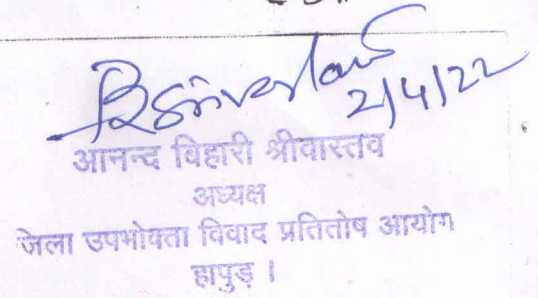 2/4/22
आनन्द विहारी श्रीवास्तव
अध्यक्ष
जेला उपभोक्ता विवाद प्रतितोष आयोग
हापुड़ ।